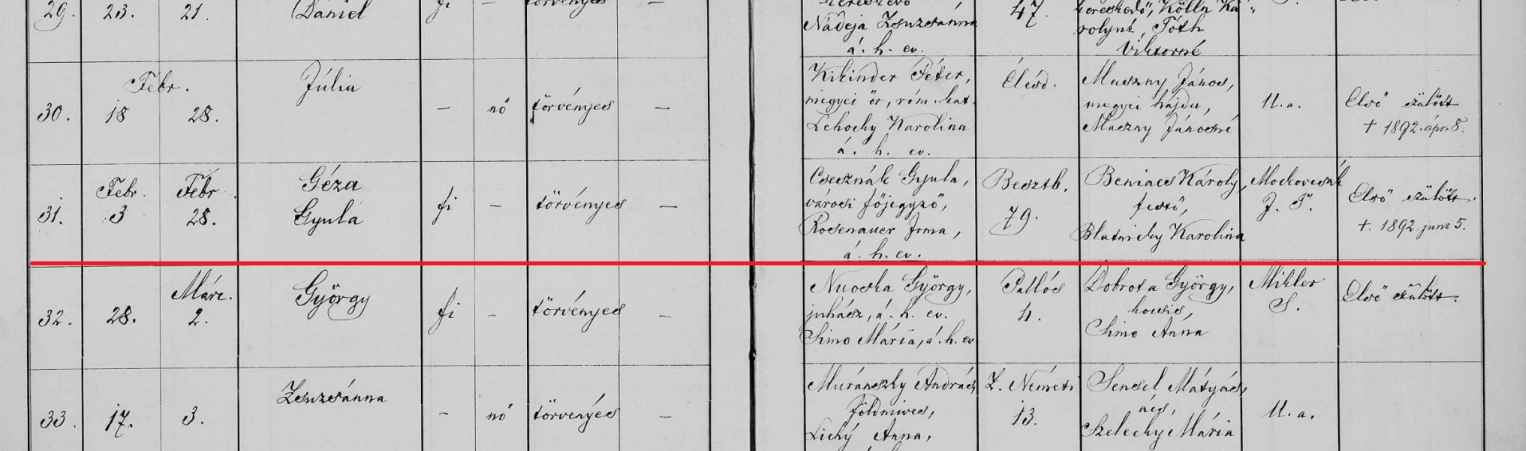 29. 23. 21. Dániel fi – törvényes –
Nadeja Zsuzsánna
á. h. ev.
47.
kereskedő, Kölln Ká-
rolyné, Tóth
Viktorné
30. Febr. 18 28. Júlia – nő törvényes –
Kikinder Péter,
megyei őr, róm. kat.
Lehoczky Karolina
á. h. ev.
Muszny János,
megyei hajdu,
Muszny Jánosné
U. a.
Első szülött
† 1892. ápr. 8.
31. Febr. 3 Febr. 28. Géza
Gyula
fi – törvényes –
Csesznák Gyula,
városi főjegyző,
Rosenauer Irma,
á. h. ev.
Besztb.
79.
Beniacs Károly,
festő,
Blatniczky Karolina
Mockovcsák
J. T.
Első szülött.
† 1892. jun. 5.
32. 28. Márc. 2. György fi – törvényes –
György,
juhász, á. h. ev.
Simo Mária, á. h. ev.
4.
Dobrota György,
Simo Anna
Mikler
S.
Első szülött.
33. 17. 3. Zsuzsánna – nő törvényes –
Muránszky András,
földmives,
Lichý Anna,
Z. Németi
13.
Sensel Mátyás,
ács,
Szelecky Mária
U. a.